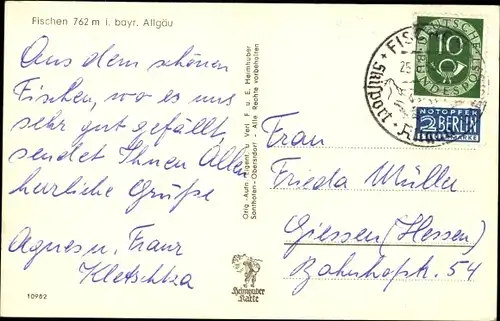 Fischen 762 m i. bayr. Allgäu
Aus dem schönen
Fischen, wo es uns
sehr gut gefällt,
sendet Ihnen Allen
herzliche Grüße
Agnes u. Franz
Kletschka
10962
Orig.-Aufn. Eigent. u. Verl. F. u. E. Heimhuber
Sonthofen-Oberstdorf - Alle Rechte vorbehalten
Heimhuber
Karte
FISCHEN
25.
Skisport
10
DEUTSCHE
BUNDESPOST
NOTOPFER
2 BERLIN
STEUERMARKE
Frau
Frieda Müller
Giessen (Hessen)
Bahnhofstr. 54